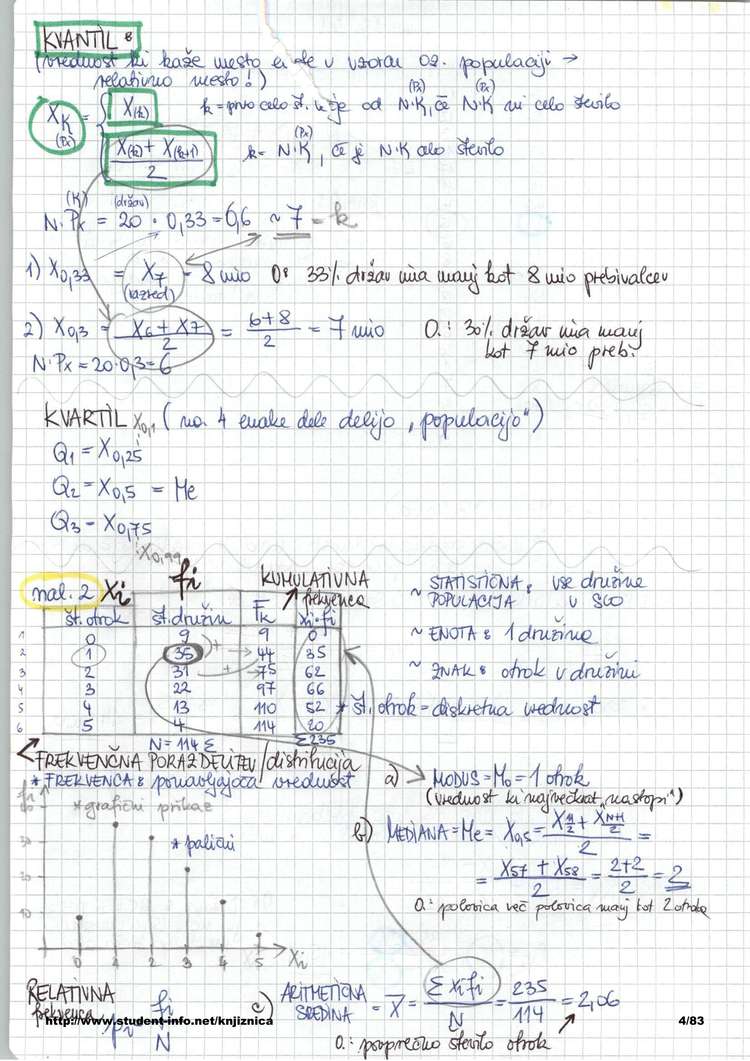 KVANTIL:
(vrednost ki kaže mesto enote v vzorcu oz. populaciji →
relativno mesto!)
X_K (Px) = { X(k) k = prvo celo št. večje od N·K (Px), če N·K (Px) ni celo število
(X(k) + X(k+1)) / 2 k = N·K (Px), če je N·K celo število
(K) (držav)
N·Px = 20 · 0,33 = 6,6 ~ 7 = k
1) X0,33 = X7 = 8 mio O: 33% držav ima manj kot 8 mio prebivalcev
(razred)
2) X0,3 = (X6 + X7) / 2 = (6+8) / 2 = 7 mio O.: 30% držav ima manj
kot 7 mio preb.
N·Px = 20·0,3 = 6
KVARTIL X0,1 (na 4 enake dele delijo "populacijo")
Q1 = X0,25
Q2 = X0,5 = Me
Q3 = X0,75
X0,99
nal. 2 Xi fi KUMULATIVNA frekvenca
št. otrok št. družin Fk xi·fi
1 0 9 9 0
2 1 35 + → 44 35
3 2 31 + → 75 62
4 3 22 97 66
5 4 13 110 52
6 5 4 114 20
N = 114 Σ Σ 235
~ STATISTIČNA POPULACIJA: vse družine v SLO
~ ENOTA: 1 družina
~ ZNAK: otrok v družini
* št. otrok = diskretna vrednost
FREKVENČNA PORAZDELITEV / distribucija
* FREKVENCA: ponavljajoča vrednost
a) MODUS = Mo = 1 otrok
(vrednost ki največkrat "nastopi")
fi
* grafični prikaz
* palični
30
10
0 1 2 3 4 5 Xi
b) MEDIANA = Me = X0,5 = (XN/2 + XN+1/2) / 2 =
= (X57 + X58) / 2 = (2+2) / 2 = 2
O.: polovica več polovica manj kot 2 otroka
RELATIVNA frekvenca
fi / N
c) ARITMETIČNA SREDINA = X̄ = Σ xi fi / N = 235 / 114 = 2,06
O.: povprečno število otrok
http://www.student-info.net/knjiznica
4/83